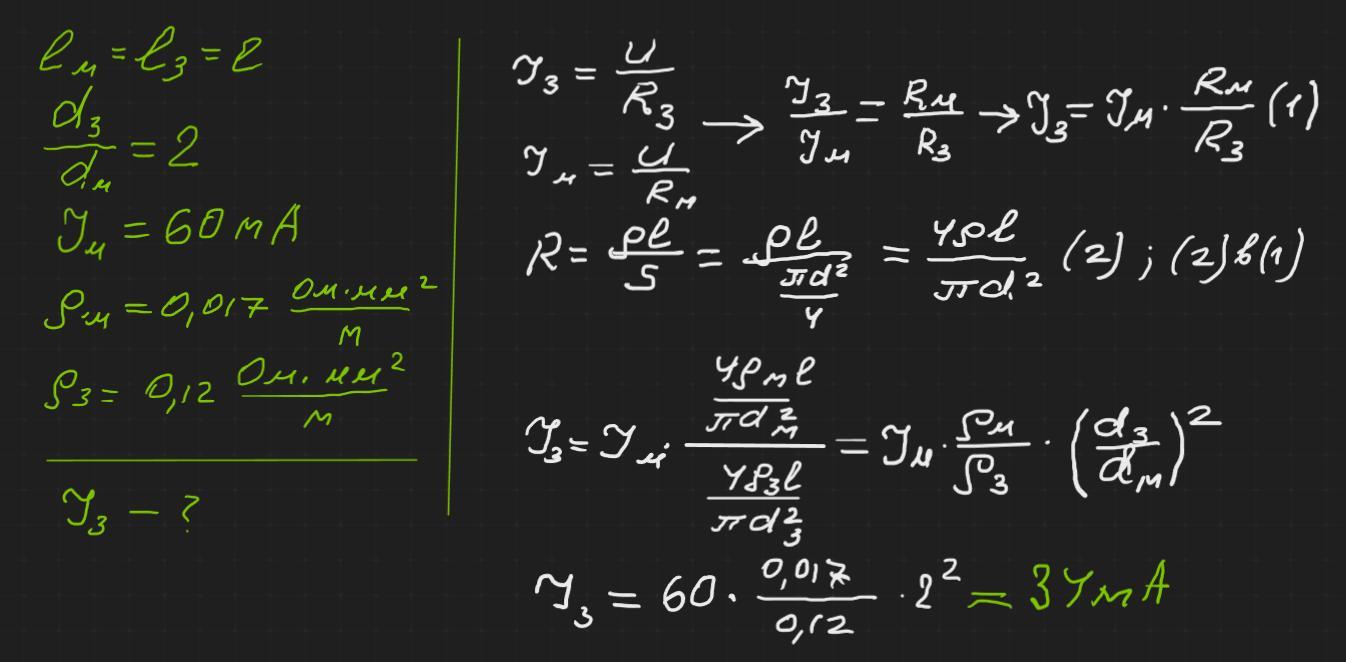 l_м = l_з = l
d_з/d_м = 2
I_м = 60 мА
ρ_м = 0,017 Ом·мм²/м
ρ_з = 0,12 Ом·мм²/м
I_з — ?
I_з = U/R_з
I_м = U/R_м
→ I_з/I_м = R_м/R_з → I_з = I_м · R_м/R_з (1)
R = ρl/S = ρl/(πd²/4) = 4ρl/πd² (2) ; (2) в (1)
I_з = I_м · (4ρ_м l/πd_м²)/(4ρ_з l/πd_з²) = I_м · ρ_м/ρ_з · (d_з/d_м)²
I_з = 60 · 0,017/0,12 · 2² = 34 мА